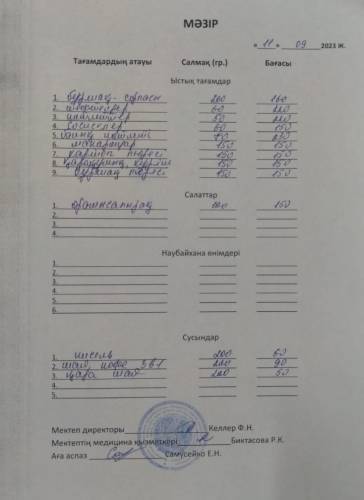 МӘЗІР
« 11 » 09 2023 ж.
Тағамдардың атауы Салмақ (гр.) Бағасы
Ыстық тағамдар
1. бұршақ сорпасы 200 160
2. 60 220
3. 50 220
4. Сосискелер 60 150
5. 150
6. макарондар 150 150
7. картоп пюресі 150 150
8. Қарақұмық 150 150
9. бұршақ пюресі 150 150
Салаттар
1. 100 150
2.
3.
4.
Наубайхана өнімдері
1.
2.
3.
4.
5.
6.
Сусындар
1. кисель 200 60
2. шай, кофе 3в1 200 90
3. қара шай 200 50
4.
5.
Мектеп директоры Келлер Ф.Н.
Мектептің медицина қызметкері Биктасова Р.К.
Аға аспаз Самусейко Е.Н.